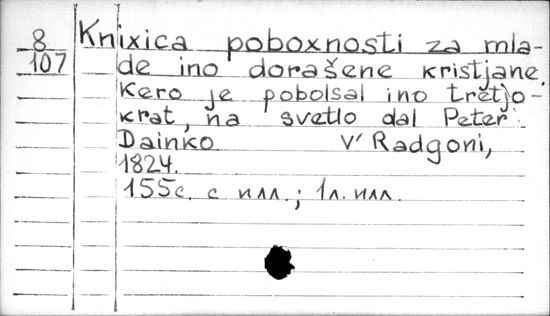 8 Knixica poboxnosti za mla-
107 de ino dorašene kristjane.
Kero je pobolsal ino tretjo-
krat, na svetlo dal Peter
Dainko V' Radgoni,
1824.
155с. с илл.; 1л. илл.